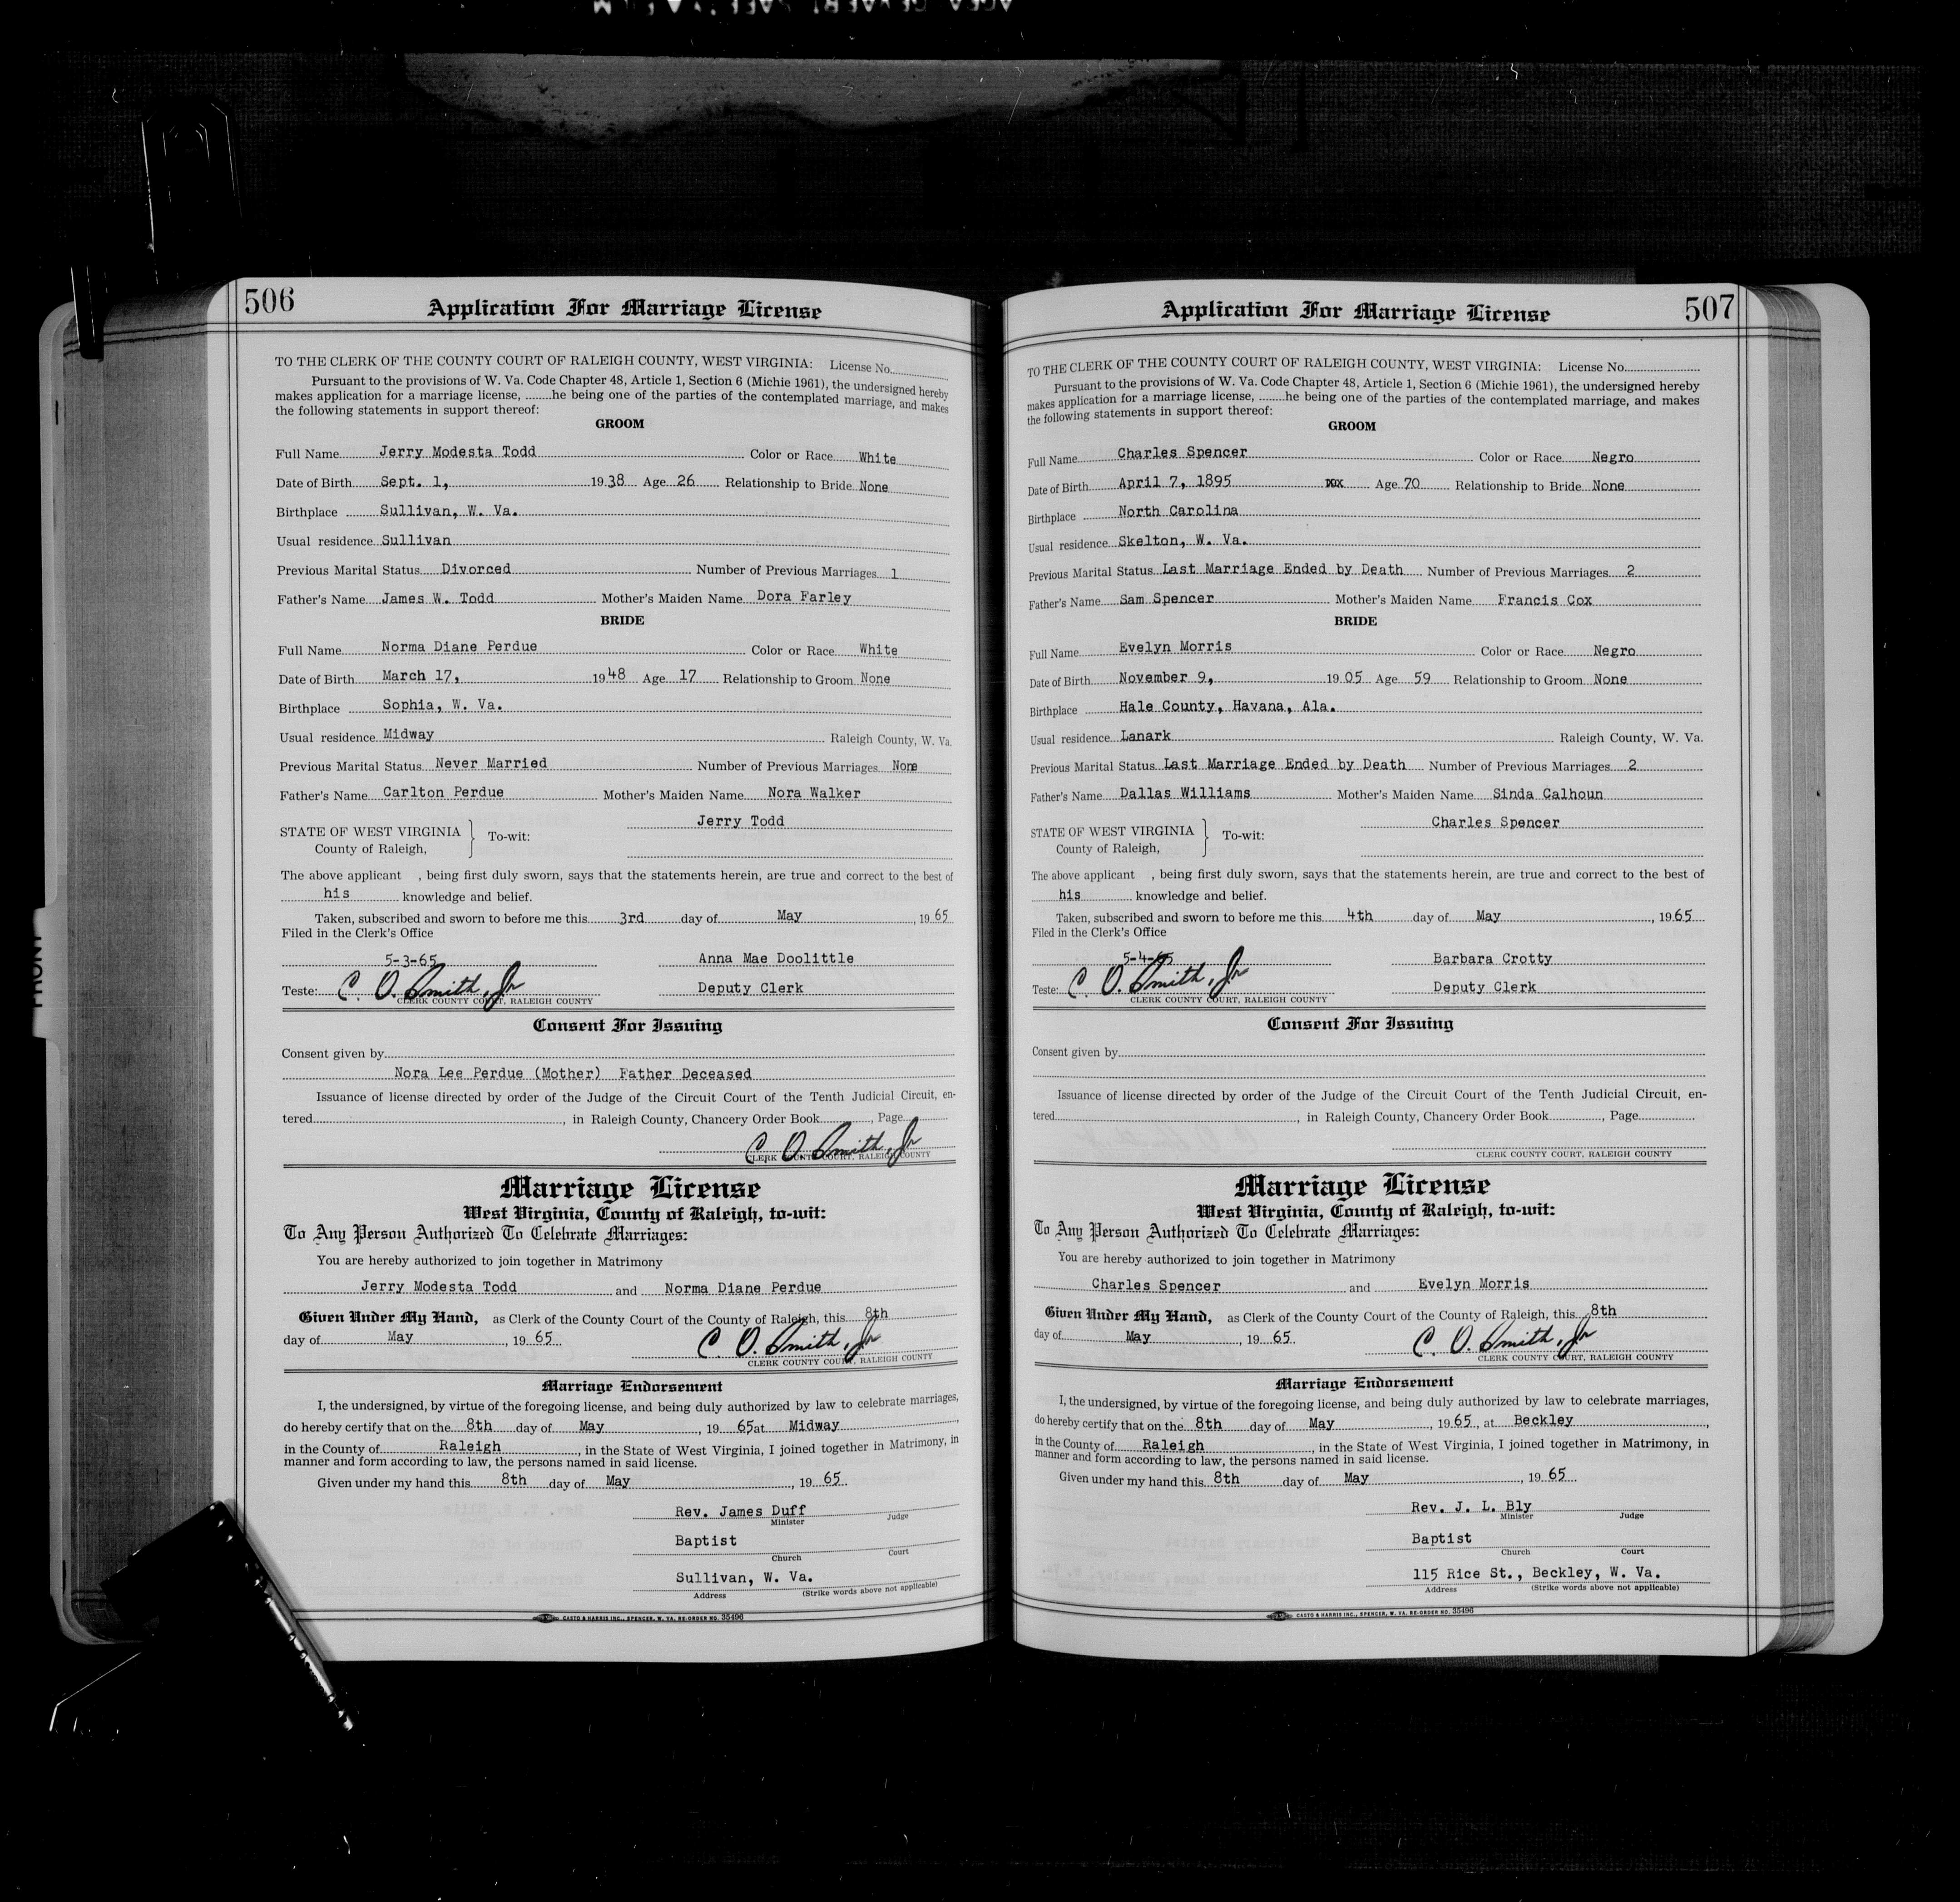 506
Application For Marriage License
TO THE CLERK OF THE COUNTY COURT OF RALEIGH COUNTY, WEST VIRGINIA: License No.
Pursuant to the provisions of W. Va. Code Chapter 48, Article 1, Section 6 (Michie 1961), the undersigned hereby
makes application for a marriage license, ........he being one of the parties of the contemplated marriage, and makes
the following statements in support thereof:
GROOM
Full Name Jerry Modesta Todd Color or Race White
Date of Birth Sept. 1, 1938 Age 26 Relationship to Bride None
Birthplace Sullivan, W. Va.
Usual residence Sullivan
Previous Marital Status Divorced Number of Previous Marriages 1
Father's Name James W. Todd Mother's Maiden Name Dora Farley
BRIDE
Full Name Norma Diane Perdue Color or Race White
Date of Birth March 17, 1948 Age 17 Relationship to Groom None
Birthplace Sophia, W. Va.
Usual residence Midway Raleigh County, W. Va.
Previous Marital Status Never Married Number of Previous Marriages None
Father's Name Carlton Perdue Mother's Maiden Name Nora Walker
Jerry Todd
STATE OF WEST VIRGINIA } To-wit:
County of Raleigh,
The above applicant , being first duly sworn, says that the statements herein, are true and correct to the best of
his knowledge and belief.
Taken, subscribed and sworn to before me this 3rd day of May, 1965
Filed in the Clerk's Office
5-3-65 Anna Mae Doolittle
Teste: C. O. Smith, Jr Deputy Clerk
CLERK COUNTY COURT, RALEIGH COUNTY
Consent For Issuing
Consent given by
Nora Lee Perdue (Mother) Father Deceased
Issuance of license directed by order of the Judge of the Circuit Court of the Tenth Judicial Circuit, en-
tered, in Raleigh County, Chancery Order Book, Page
C. O. Smith, Jr
CLERK COUNTY COURT, RALEIGH COUNTY
Marriage License
West Virginia, County of Raleigh, to-wit:
To Any Person Authorized To Celebrate Marriages:
You are hereby authorized to join together in Matrimony
Jerry Modesta Todd and Norma Diane Perdue
Given Under My Hand, as Clerk of the County Court of the County of Raleigh, this 8th
day of May, 19 65. C. O. Smith, Jr
CLERK COUNTY COURT, RALEIGH COUNTY
Marriage Endorsement
I, the undersigned, by virtue of the foregoing license, and being duly authorized by law to celebrate marriages,
do hereby certify that on the 8th day of May, 19 65 at Midway,
in the County of Raleigh, in the State of West Virginia, I joined together in Matrimony, in
manner and form according to law, the persons named in said license.
Given under my hand this 8th day of May, 19 65.
Rev. James Duff
Minister Judge
Baptist
Church Court
Sullivan, W. Va.
Address (Strike words above not applicable)
CASTO & HARRIS INC., SPENCER, W. VA. RE-ORDER NO. 35496
507
Application For Marriage License
TO THE CLERK OF THE COUNTY COURT OF RALEIGH COUNTY, WEST VIRGINIA: License No.
Pursuant to the provisions of W. Va. Code Chapter 48, Article 1, Section 6 (Michie 1961), the undersigned hereby
makes application for a marriage license, ........he being one of the parties of the contemplated marriage, and makes
the following statements in support thereof:
GROOM
Full Name Charles Spencer Color or Race Negro
Date of Birth April 7, 1895 xxx Age 70 Relationship to Bride None
Birthplace North Carolina
Usual residence Skelton, W. Va.
Previous Marital Status Last Marriage Ended by Death Number of Previous Marriages 2
Father's Name Sam Spencer Mother's Maiden Name Francis Cox
BRIDE
Full Name Evelyn Morris Color or Race Negro
Date of Birth November 9, 1905 Age 59 Relationship to Groom None
Birthplace Hale County, Havana, Ala.
Usual residence Lanark Raleigh County, W. Va.
Previous Marital Status Last Marriage Ended by Death Number of Previous Marriages 2
Father's Name Dallas Williams Mother's Maiden Name Sinda Calhoun
Charles Spencer
STATE OF WEST VIRGINIA } To-wit:
County of Raleigh,
The above applicant , being first duly sworn, says that the statements herein, are true and correct to the best of
his knowledge and belief.
Taken, subscribed and sworn to before me this 4th day of May, 1965
Filed in the Clerk's Office
5-4-65 Barbara Crotty
Teste: C. O. Smith, Jr Deputy Clerk
CLERK COUNTY COURT, RALEIGH COUNTY
Consent For Issuing
Consent given by
Issuance of license directed by order of the Judge of the Circuit Court of the Tenth Judicial Circuit, en-
tered, in Raleigh County, Chancery Order Book, Page
CLERK COUNTY COURT, RALEIGH COUNTY
Marriage License
West Virginia, County of Raleigh, to-wit:
To Any Person Authorized To Celebrate Marriages:
You are hereby authorized to join together in Matrimony
Charles Spencer and Evelyn Morris
Given Under My Hand, as Clerk of the County Court of the County of Raleigh, this 8th
day of May, 19 65. C. O. Smith, Jr
CLERK COUNTY COURT, RALEIGH COUNTY
Marriage Endorsement
I, the undersigned, by virtue of the foregoing license, and being duly authorized by law to celebrate marriages,
do hereby certify that on the 8th day of May, 1965, at Beckley,
in the County of Raleigh, in the State of West Virginia, I joined together in Matrimony, in
manner and form according to law, the persons named in said license.
Given under my hand this 8th day of May, 19 65.
Rev. J. L. Bly
Minister Judge
Baptist
Church Court
115 Rice St., Beckley, W. Va.
Address (Strike words above not applicable)
CASTO & HARRIS INC., SPENCER, W. VA. RE-ORDER NO. 35496